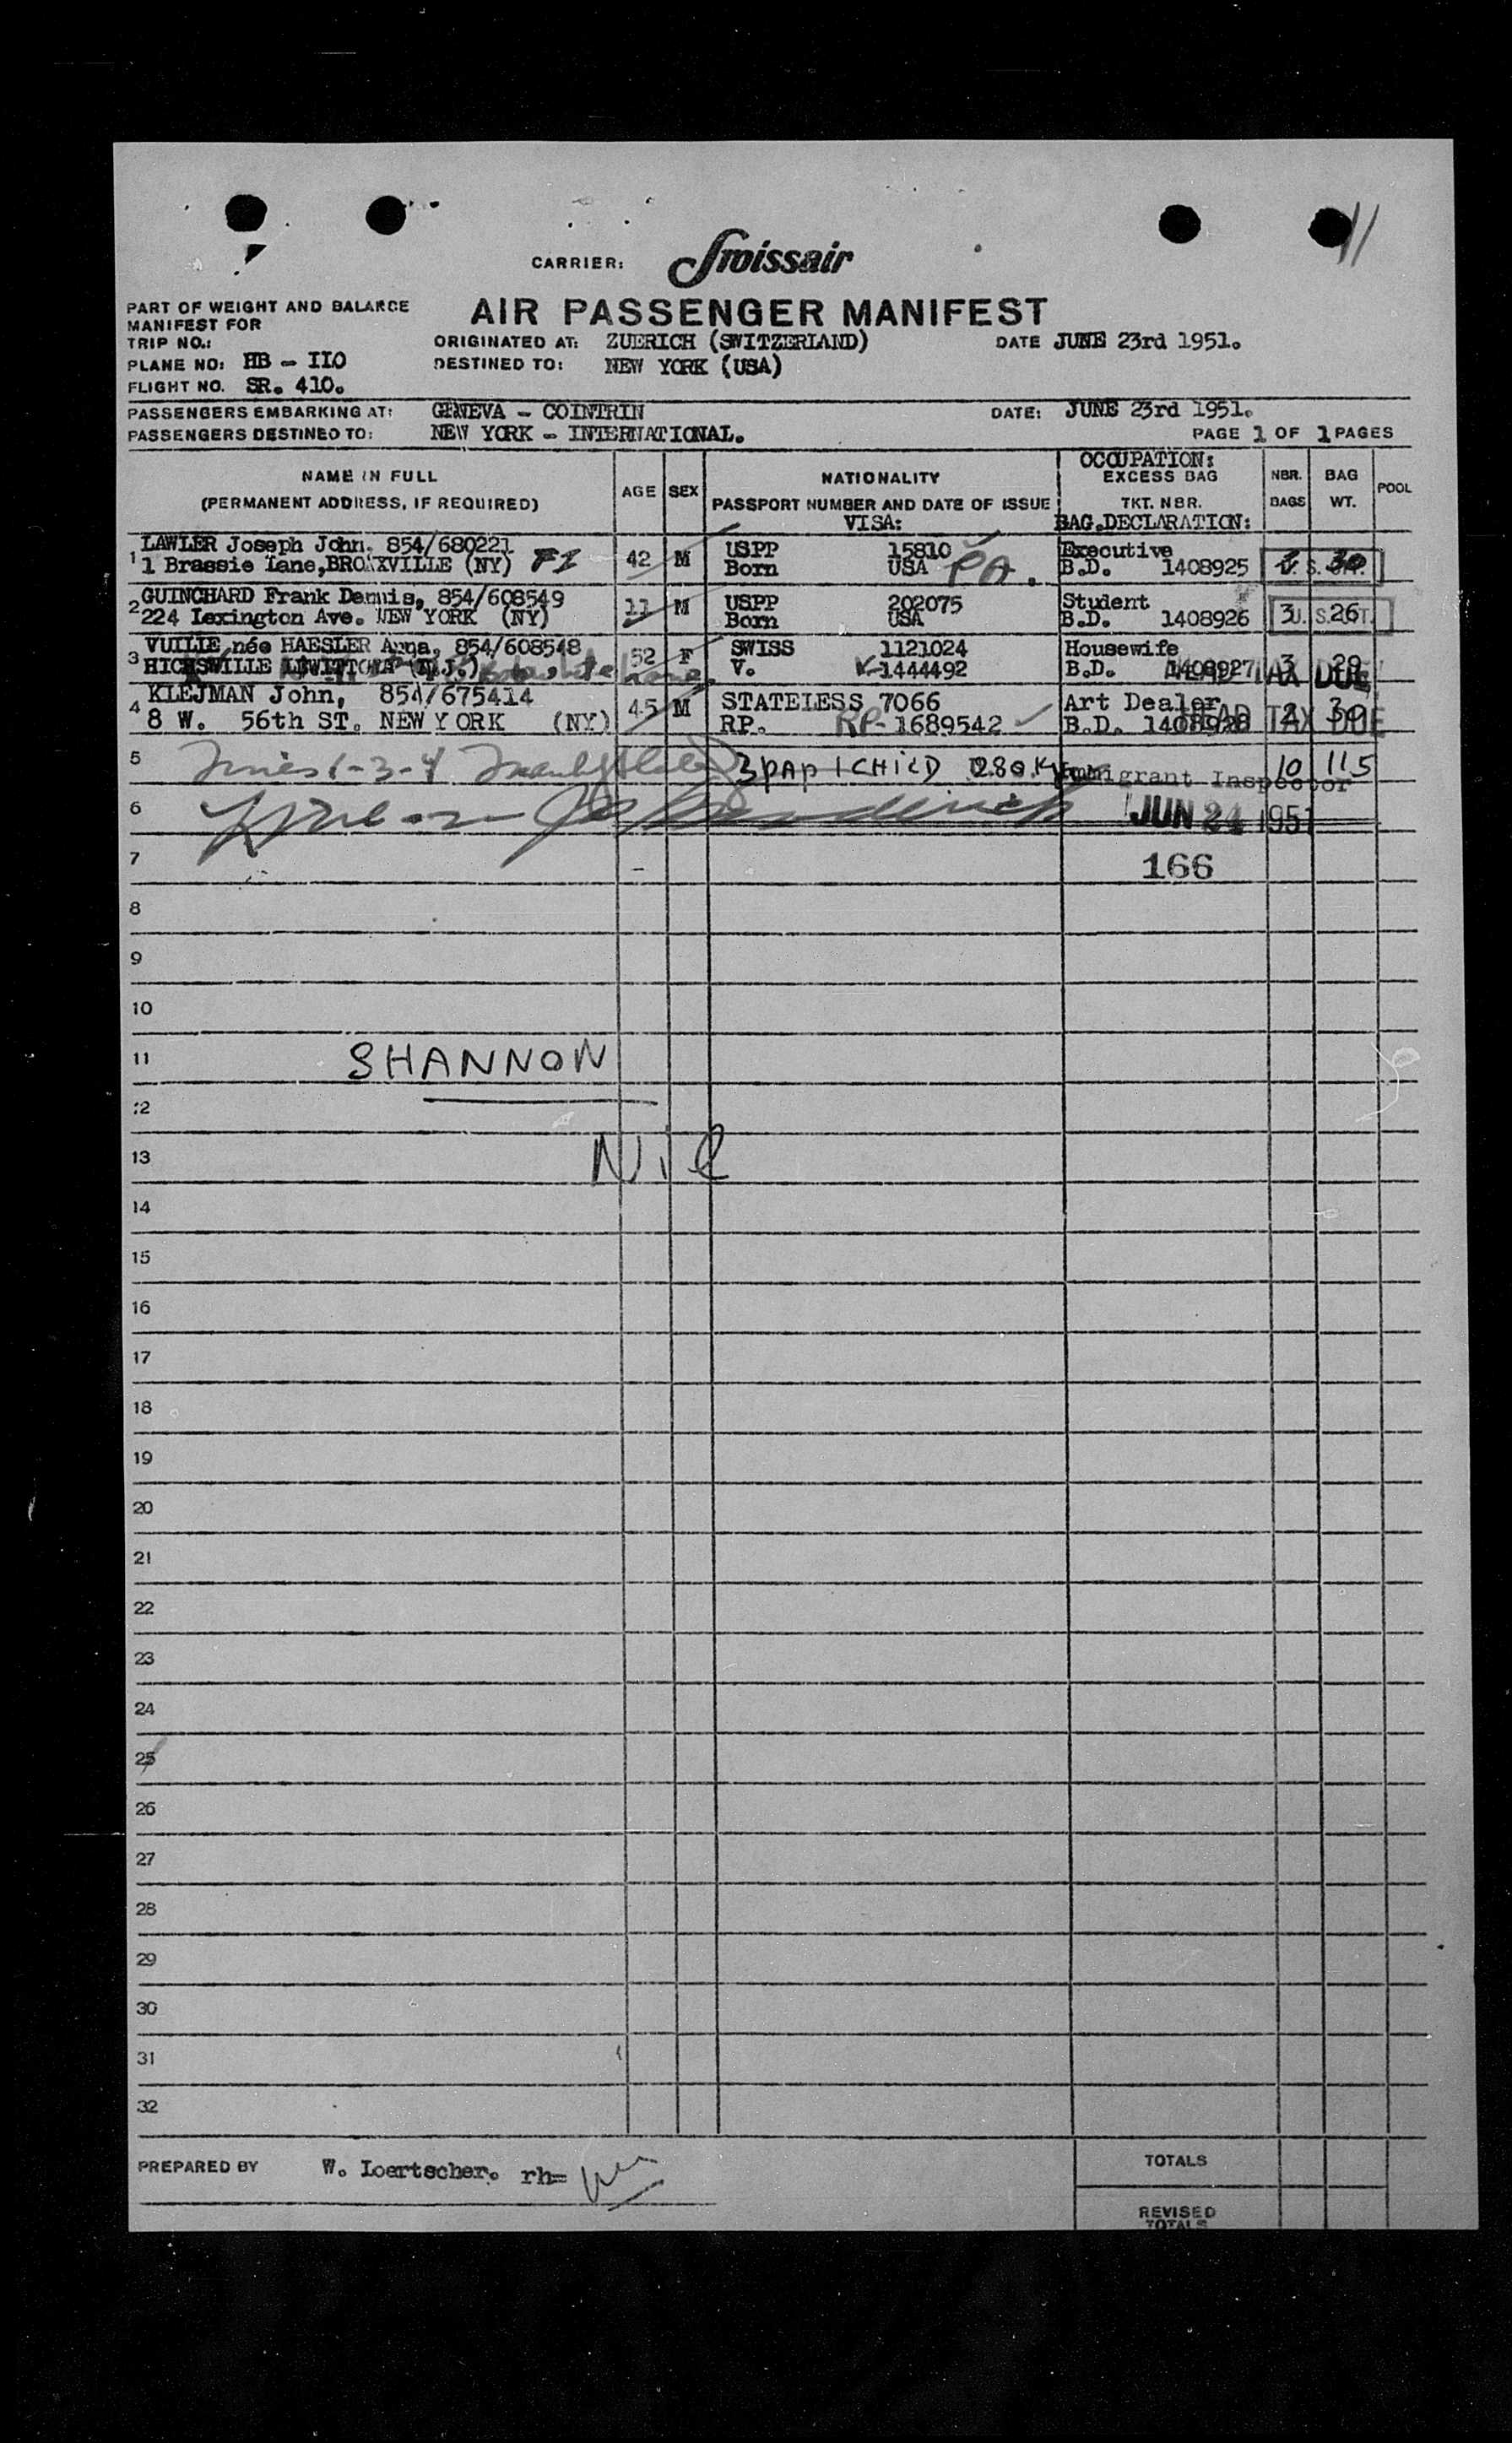 11
CARRIER: Swissair
AIR PASSENGER MANIFEST
PART OF WEIGHT AND BALANCE
MANIFEST FOR
TRIP NO.:
ORIGINATED AT: ZUERICH (SWITZERLAND) DATE JUNE 23rd 1951.
PLANE NO: HB - IIO DESTINED TO: NEW YORK (USA)
FLIGHT NO. SR. 410.
PASSENGERS EMBARKING AT: GENEVA - COINTRIN DATE: JUNE 23rd 1951.
PASSENGERS DESTINED TO: NEW YORK - INTERNATIONAL. PAGE 1 OF 1 PAGES
NAME IN FULL
(PERMANENT ADDRESS, IF REQUIRED)
AGE SEX
NATIONALITY
PASSPORT NUMBER AND DATE OF ISSUE
VISA:
OCCUPATION:
EXCESS BAG
TKT. NBR.
BAG.DECLARATION:
NBR. BAGS
BAG WT.
POOL
1 LAWLER Joseph John. 854/680221 42 M USPP 15810 Executive
1 Brassie Lane, BRONXVILLE (NY) FI Born USA PA. B.D. 1408925 30
2 GUINCHARD Frank Dennis, 854/608549 11 M USPP 202075 Student
224 Lexington Ave. NEW YORK (NY) Born USA B.D. 1408926 3 26 U.S.
3 VUILLE née HAESLER Anna, 854/608548 52 F SWISS 1121024 Housewife
HICKSVILLE V. V-1444492 B.D. 1408927 3 29 TAX DUE
4 KLEJMAN John, 854/675414 45 M STATELESS 7066 Art Dealer
8 W. 56th ST. NEW YORK (NY) RP. RP-1689542 B.D. 1408928 2 30 HEAD TAX DUE
5 1-3-4 3 PAP 1 CHILD 280 K 10 115
Immigrant Inspector
6 JUN 24 1951
7 166
8
9
10
11 SHANNON
12
13 Nil
14
15
16
17
18
19
20
21
22
23
24
25
26
27
28
29
30
31
32
PREPARED BY W. Loertscher. rh=
TOTALS
REVISED
TOTALS